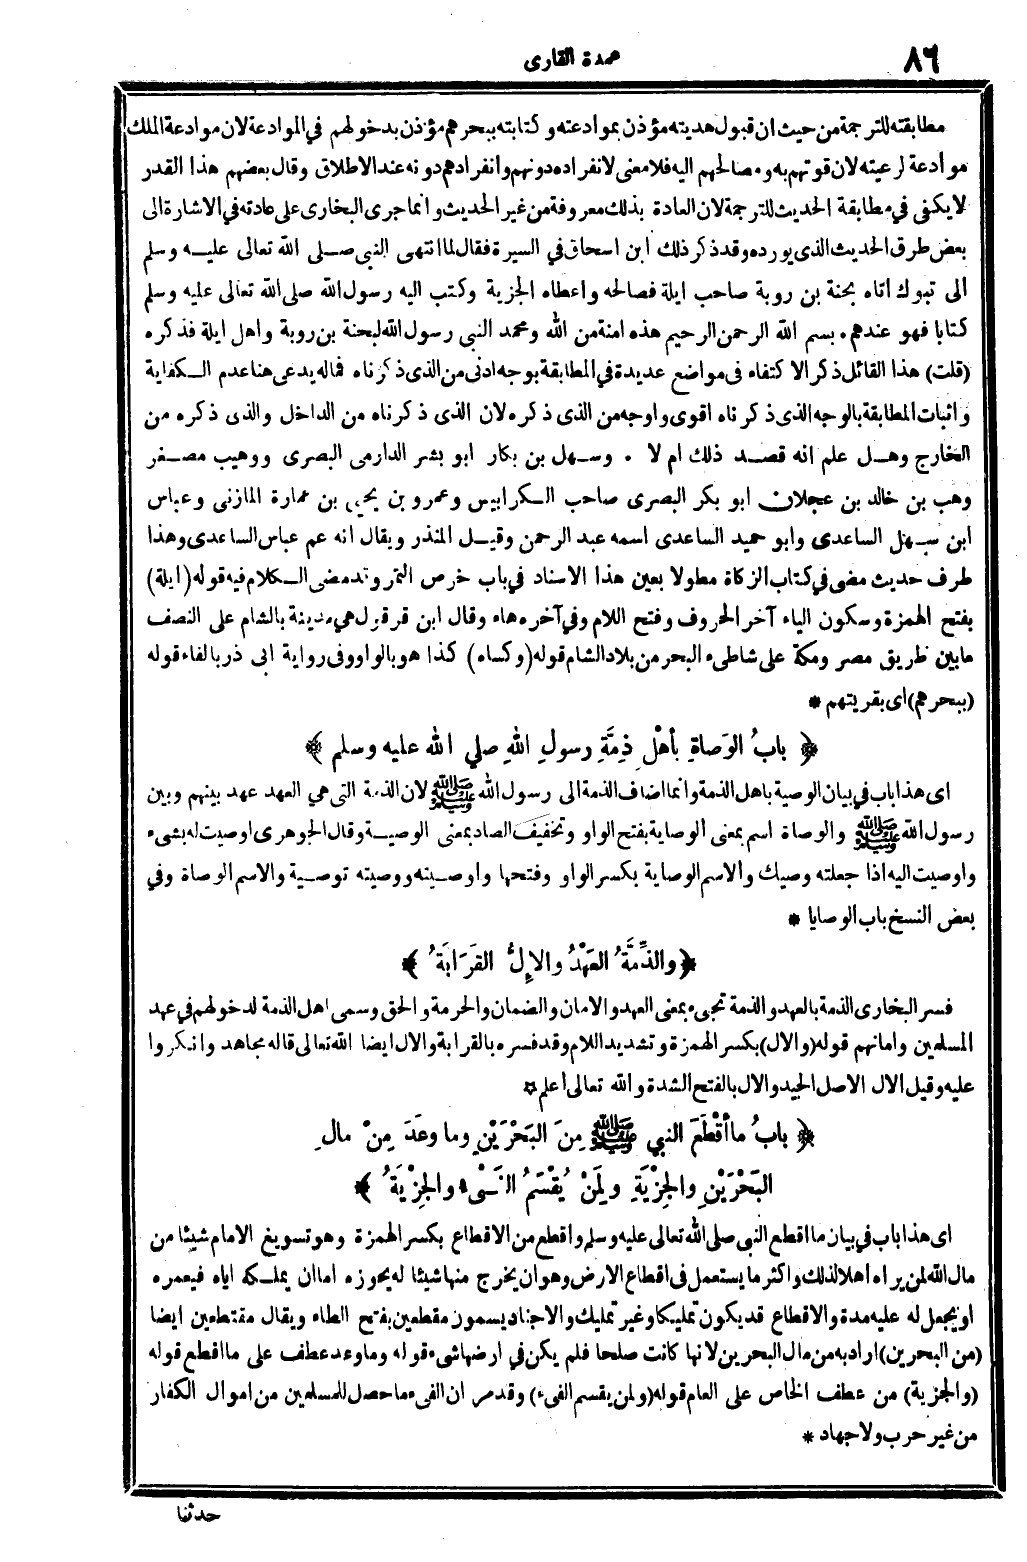 ٨٦
عمدة القارى
مطابقته للترجمة من حيث ان قبول هديته مؤذن بموادعته وكتابته ببحرهم مؤذن بدخولهم في الموادعة لان موادعة الملك
موادعة لرعيته لان قوتهم به ومصالحهم اليه فلا معنى لانفراده دونهم وانفرادهم دونه عند الاطلاق وقال بعضهم هذا القدر
لا يكفى في مطابقة الحديث للترجمة لان العادة بذلك معروفة من غير الحديث وانما جرى البخارى على عادته في الاشارة الى
بعض طرق الحديث الذى يورده وقد ذكر ذلك ابن اسحاق في السيرة فقال لما انتهى النبي صلى الله تعالى عليه وسلم
الى تبوك اتاه بحنة بن روبة صاحب ايلة فصالحه واعطاه الجزية وكتب اليه رسول الله صلى الله تعالى عليه وسلم
كتابا فهو عندهم بسم الله الرحمن الرحيم هذه امنة من الله ومحمد النبي رسول الله لبحنة بن روبة واهل ايلة فذكره
(قلت) هذا القائل ذكر الاكتفاء فى مواضع عديدة في المطابقة بوجه ادنى من الذى ذكرناه فماله يدعى هنا عدم الكفاية
واثبات المطابقة بالوجه الذى ذكرناه اقوى واوجه من الذى ذكره لان الذى ذكرناه من الداخل والذى ذكره من
الخارج وهل علم انه قصد ذلك ام لا . وسهل بن بكار ابو بشر الدارمى البصرى ووهيب مصغر
وهب بن خالد بن عجلان ابو بكر البصرى صاحب الكرابيس وعمرو بن يحيى بن عمارة المازنى وعباس
ابن سهل الساعدى وابو حميد الساعدى اسمه عبد الرحمن وقيل المنذر ويقال انه عم عباس الساعدى وهذا
طرف حديث مضى في كتاب الزكاة مطولا بعين هذا الاسناد في باب خرص التمر وقد مضى الكلام فيه قوله (ايلة)
بفتح الهمزة وسكون الياء آخر الحروف وفتح اللام وفي آخره هاء وقال ابن قرقول هي مدينة بالشام على النصف
مابين طريق مصر ومكة على شاطىء البحر من بلاد الشام قوله (وكساه) كذا هو بالواو وفى رواية ابى ذر بالفاء قوله
(ببحرهم) اى بقريتهم *
﴿ بابُ الوَصاةِ بأهْلِ ذِمَّةِ رسولِ اللهِ صلي اللهُ عليه وسلم ﴾
اى هذا باب في بيان الوصية باهل الذمة وانما اضاف الذمة الى رسول الله ﷺ لان الذمة التى هي العهد عهد بينهم وبين
رسول الله ﷺ والوصاة اسم بمعنى الوصاية بفتح الواو وتخفيف الصاد بمعنى الوصية وقال الجوهرى اوصيت له بشىء
واوصيت اليه اذا جعلته وصيك والاسم الوصاية بكسر الواو وفتحها واوصيته ووصيته توصية والاسم الوصاة وفي
بعض النسخ باب الوصايا *
﴿ والذِّمَّةُ العَهْدُ والإِلُّ القَرَابَةُ ﴾
فسر البخارى الذمة بالعهد والذمة تجىء بمعنى العهد والامان والضمان والحرمة والحق وسمى اهل الذمة لدخولهم في عهد
المسلمين وامانهم قوله (والال) بكسر الهمزة وتشديد اللام وقد فسره بالقرابة والال ايضا الله تعالى قاله مجاهد وانكروا
عليه وقيل الال الاصل الجيد والال بالفتح الشدة والله تعالى اعلم *
﴿ بابُ ما أقْطَعَ النبي ﷺ مِنَ البَحْرَيْنِ وما وعَدَ مِنْ مالِ
البَحْرَيْنِ والجِزْيَةِ ولِمَنْ يُقْسَمُ الفَىْءُ والجِزْيَةُ ﴾
اى هذا باب في بيان ما اقطع النبى صلى الله تعالى عليه وسلم واقطع من الاقطاع بكسر الهمزة وهو تسويغ الامام شيئا من
مال الله لمن يراه اهلا لذلك واكثر ما يستعمل فى اقطاع الارض وهو ان يخرج منها شيئا له يحوزه اما ان يملكه اياه فيعمره
او يجعل له عليه مدة والاقطاع قد يكون تمليكا وغير تمليك والاجناد يسمون مقطعين بفتح الطاء ويقال مقتطعين ايضا
(من البحرين) اراد به من مال البحرين لانها كانت صلحا فلم يكن في ارضها شىء قوله وما وعد عطف على ما اقطع قوله
(والجزية) من عطف الخاص على العام قوله (ولمن يقسم الفىء) وقد مر ان الفىء ما حصل للمسلمين من اموال الكفار
من غير حرب ولا جهاد *
حدثنا